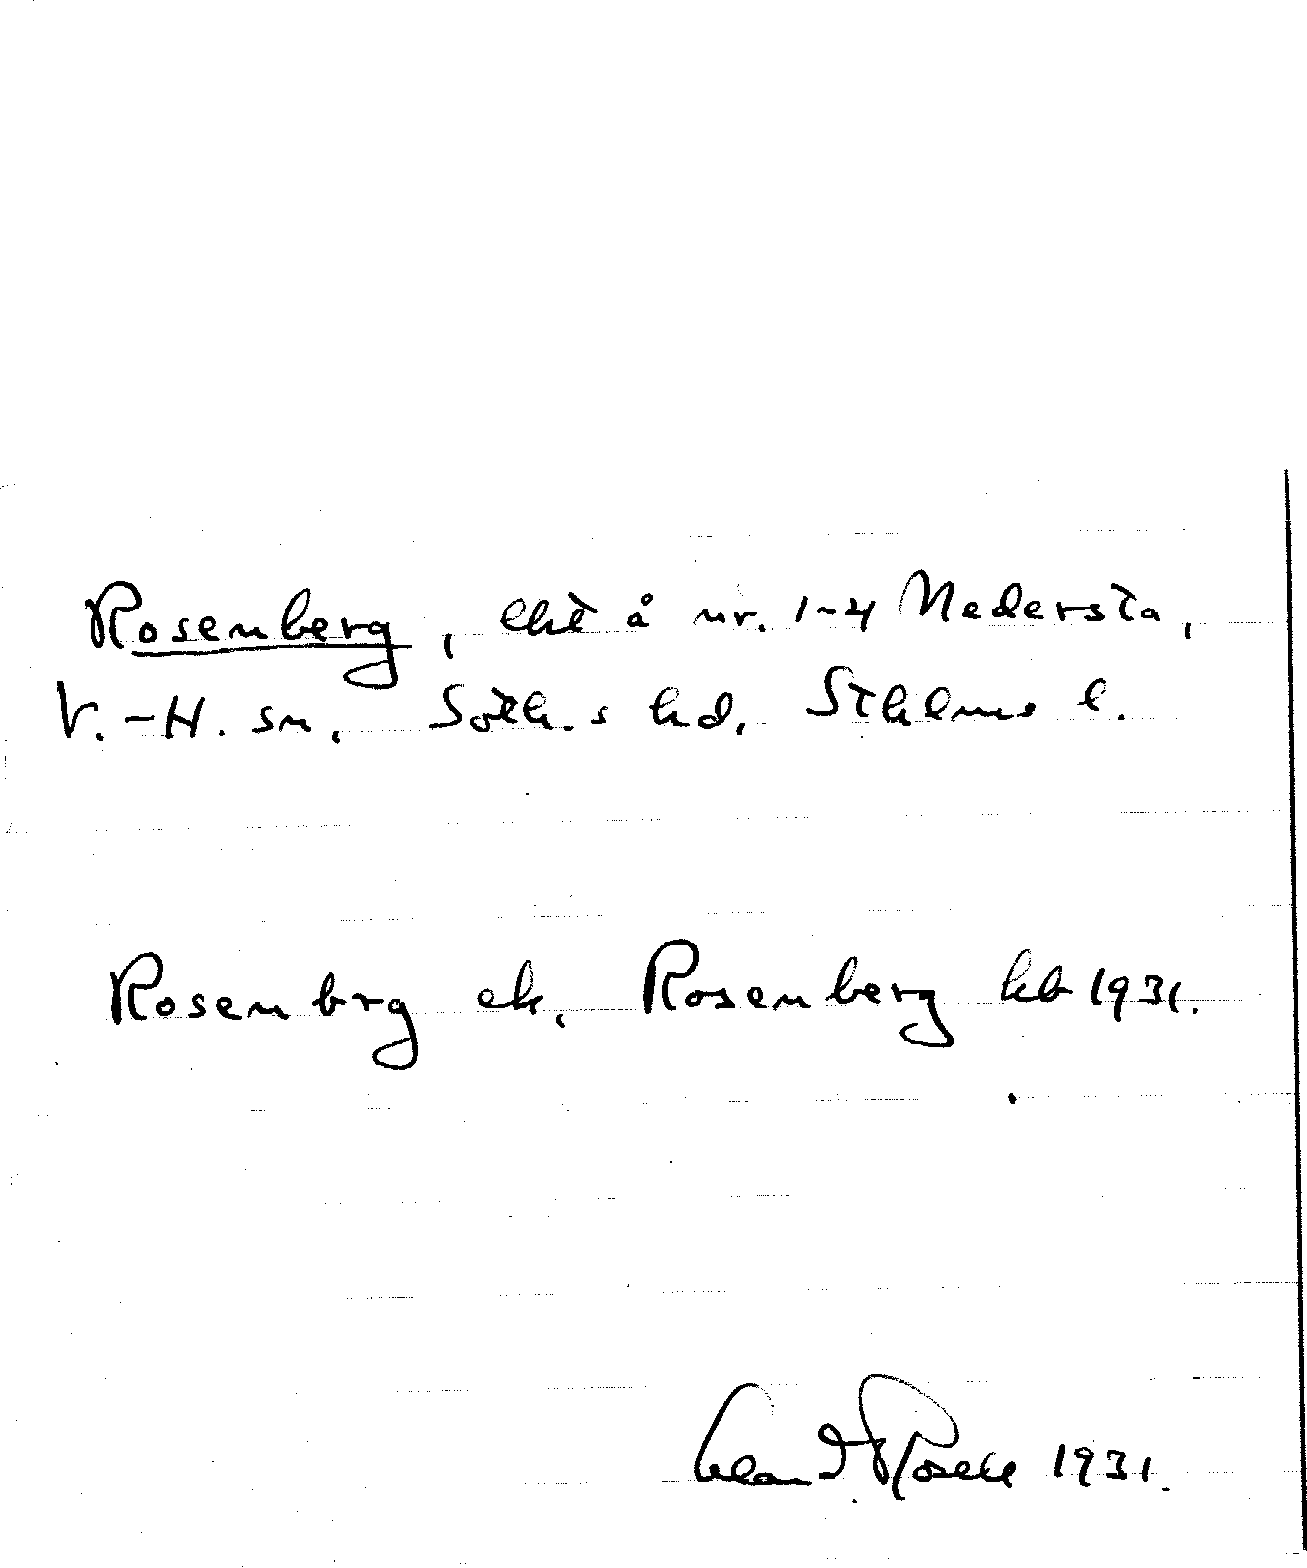 Rosenberg, lht å nr. 1-4 Nedersta,
V.-H. sn, Soth.s hd, Sthlms l.
Rosenbrg ek, Rosenberg kb 1931.
Rosell 1931.